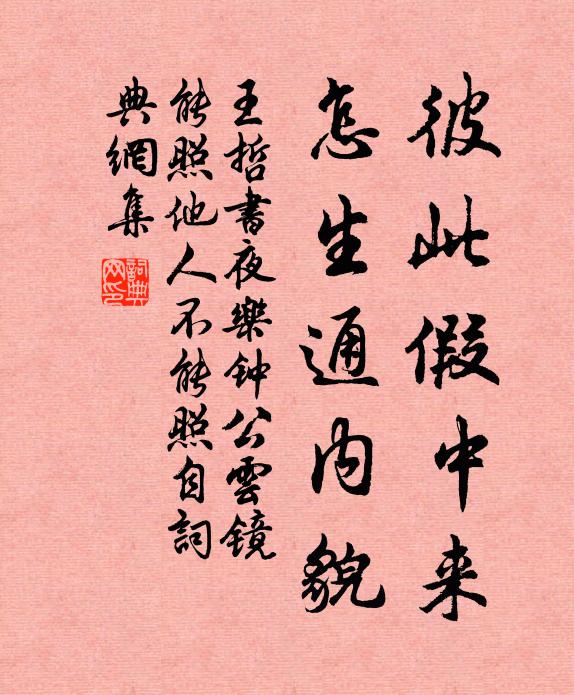 彼此假中来
怎生通内貌
王哲書夜樂钟公雲镜
能照他人不能照自詞
典網集
詞典网印